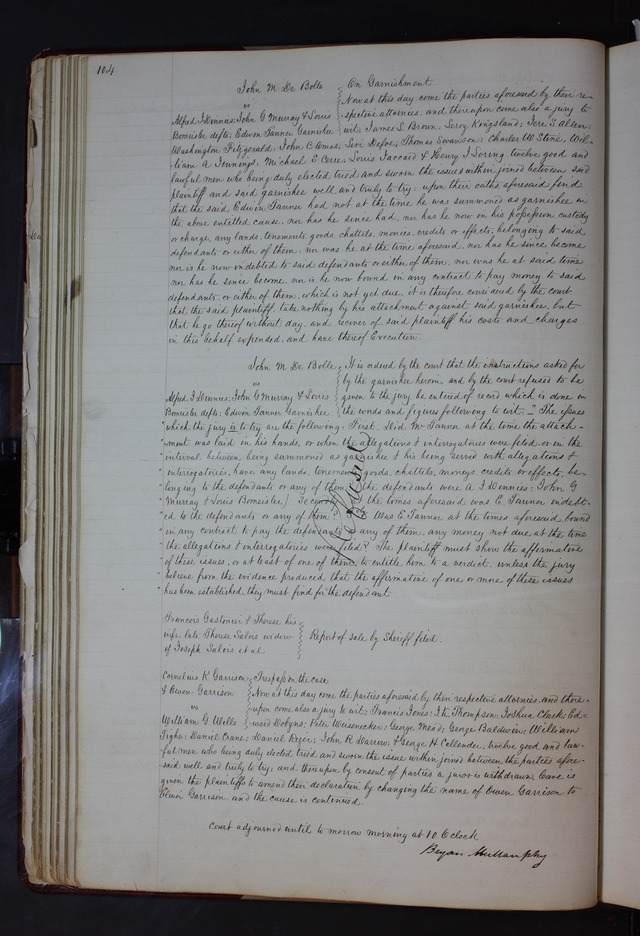 104
John M De Bolle } On Garnishment
vs } Now at this day come the parties aforesaid by their re-
Alfred J Vennies: John G Murray & Louis } spective attornies, and thereupon come also a jury to
Borneisler defts: Edwin Tanner Garnishee } wit: James L Brown: Leroy Kingsland: Jere S Alten:
Washington Fitzgerald: John C Amos: Levi Defoe: Thomas Swanson: Charles W Stine: Wil-
liam A Jennings: Michael E Cerre: Louis Jaccard & Henry J Loring twelve good and
lawful men who being duly elected tried and sworn the issues within joined between said
plaintiff and said garnishee well and truly to try: upon their oaths aforesaid find
that the said Edwin Tanner had not at the time he was summoned as garnishee in
the above entitled cause, nor has he since had, nor has he now in his possession custody
or charge, any lands, tenements, goods, chattels, monies, credits or effects, belonging to said
defendants or either of them, nor was he at the time aforesaid, nor has he since become
nor is he now indebted to said defendants or either of them, nor was he at said time
nor has he since become, nor is he now bound in any contract to pay money to said
defendants, or either of them, which is not yet due. it is therefore considered by the court
that the said plaintiff, take nothing by his attachment against said garnishee, but
that he go thereof without day, and recover of said plaintiff his costs and charges
in this behalf expended, and have thereof Execution.
John M De Bolle } It is ordered by the court that the instructions asked for
vs } by the garnishee herein, and by the court refused to be
Alfred J Vennies: John G Murray & Louis } given to the jury, be entered of record which is done in
Borneisler defts: Edwin Tanner Garnishee } the words and figures following to wit. "The issues
"which the jury is to try are the following. First. Did Mr Tanner at the time the attach-
"ment was laid in his hands, or when the allegations & interrogatories were filed, or in the
"interval, between being summoned as garnishee & his being served with allegations &
"interrogatories, have any lands, tenements, goods, chattels, moneys, credits or effects, be-
"longing to the defendants or any of them (the defendants were A J Vennies: John G
"Murray & Louis Borneisler) Second the times aforesaid was E. Tanner indebt-
"ed to the defendants or any of them? Was E Tanner at the times aforesaid bound
"in any contract to pay the defendants, or any of them, any money not due at the time
"the allegations & interrogatories were filed? The plaintiff must show the affirmative
"of these issues, or at least of one of them, to entitle him to a verdict, unless the jury
"believe from the evidence produced that the affirmative of one or more of these issues
"has been established, they must find for the defendant.
Refused
Francois Gastonier & Therese his }
wife late Therese Salois widow } Report of sale by Sheriff filed.
of Joseph Salois et al }
Cornelius K Garrison } Trespass on the case
& Owen Garrison } Now at this day come the parties aforesaid by their respective attornies, and there-
vs } upon come also a jury to wit: Francis Jones: J. K. Thompson: Joshua Clack: Ed-
William G Wells } ward Dobyns: Peter Weisenecker: George Mead: George Baldwin: William
Tighe: Daniel Crane: Daniel Rizer: John R Darrow & George H Callender, twelve good and law-
ful men who being duly elected tried and sworn the issue within joined between the parties afore-
said well and truly to try; and thereupon by consent of parties a juror is withdrawn, leave is
given the plaintiffs to amend their declaration by changing the name of Owen Garrison to
Garrison and the cause is continued.
Court adjourned until to morrow morning at 10 O clock
Bryan Mullanphy